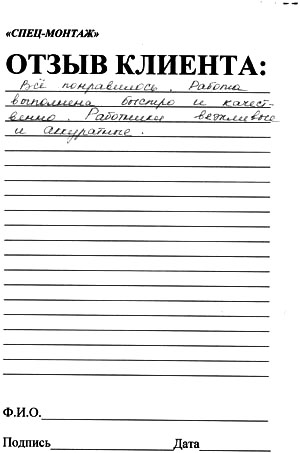 «СПЕЦ-МОНТАЖ»
ОТЗЫВ КЛИЕНТА:
Всё понравилось. Работа
выполнена быстро и качест-
венно. Работники вежливые
и аккуратные.
Ф.И.О.
Подпись Дата